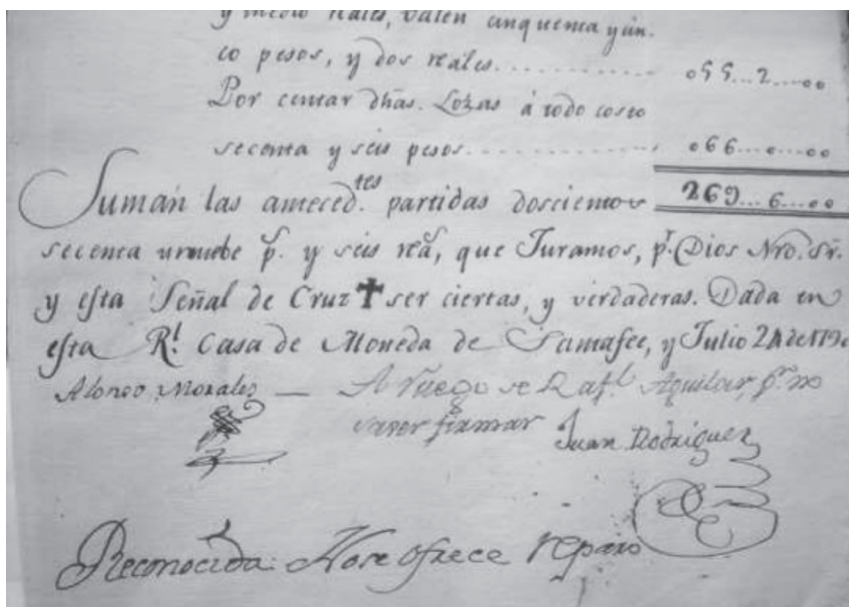 y medio reales, valen cinquenta y cin-
co pesos, y dos reales............ 055...2....00
Por centar dhas. Lozas á todo costo
secenta y seis pesos............ 066...0....00
Suman las anteced.tes partidas doscientos 269...6....00
secenta nuebe p.s y seis rea.s, que Juramos, p.r Dios Nro. Sr.
y esta Señal de Cruz ✝ ser ciertas, y verdaderas. Dada en
esta R.l Casa de Moneda de Santafee, y Julio 24 de
Alonso Morales — A ruego de Raf.l Aguilar, p.r no
saver firmar Juan Rodriguez
Reconocida: No se ofrece reparo